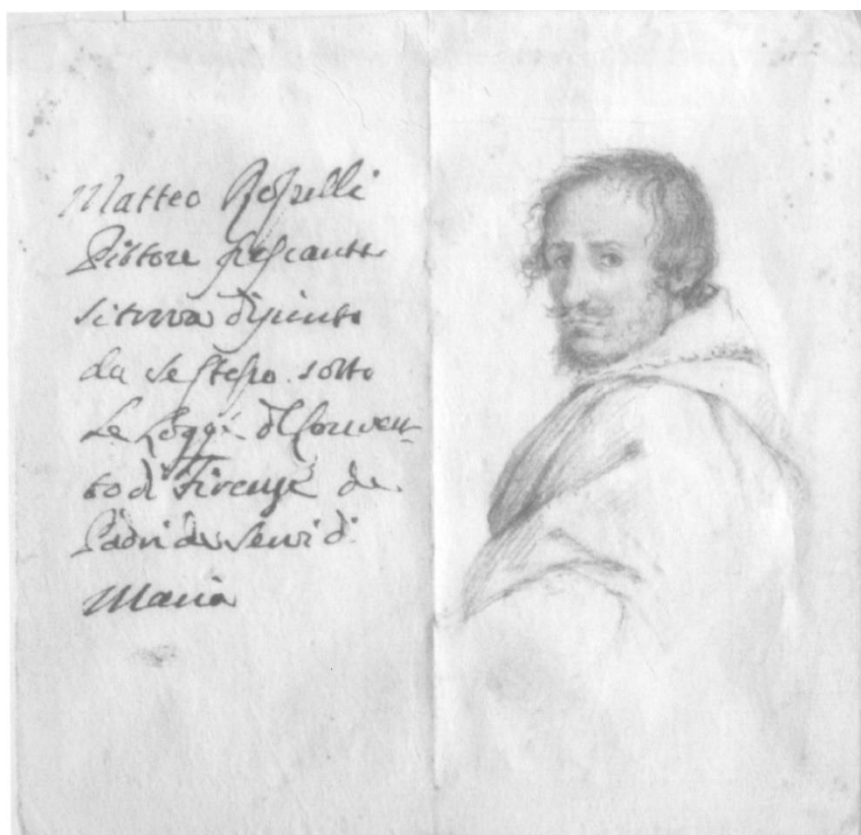 Matteo Rosselli
Pittore frescante
si trova dipinto
da se stesso sotto
Le Loggie del Conven-
to di Firenze de
Padri de Servi di
Maria